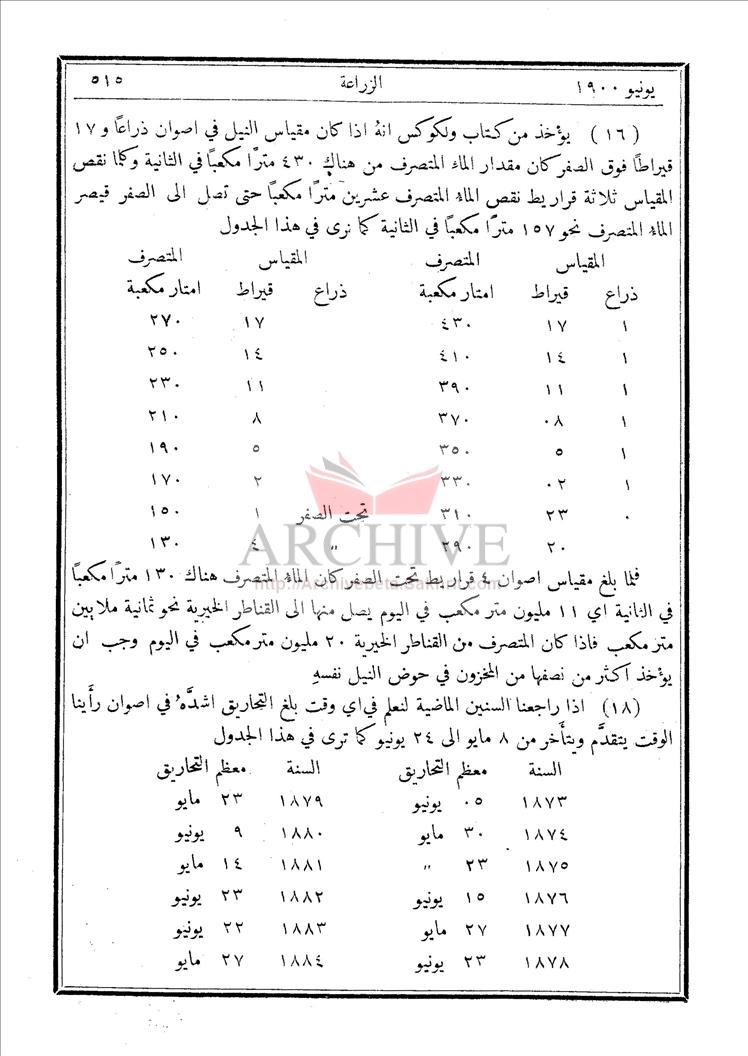 يونيو ١٩٠٠ الزراعة ٥١٥
(١٦) يؤخذ من كتاب ولكوكس انهُ اذا كان مقياس النيل في اصوان ذراعًا و ١٧
قيراطًا فوق الصفر كان مقدار الماء المتصرف من هناك ٤٣٠ مترًا مكعبًا في الثانية وكلما نقص
المقياس ثلاثة قراريط نقص الماء المتصرف عشرين مترًا مكعبًا حتى تصل الى الصفر فيصر
الماء المتصرف نحو ١٥٧ مترًا مكعبًا في الثانية كما نرى في هذا الجدول
المقياس المتصرف المقياس المتصرف
ذراع قيراط امتار مكعبة ذراع قيراط امتار مكعبة
١ ١٧ ٤٣٠ ١٧ ٢٧٠
١ ١٤ ٤١٠ ١٤ ٢٥٠
١ ١١ ٣٩٠ ١١ ٢٣٠
١ ٠٨ ٣٧٠ ٨ ٢١٠
١ ٥ ٣٥٠ ٥ ١٩٠
١ ٠٢ ٣٣٠ ٢ ١٧٠
٠ ٢٣ ٣١٠ تحت الصفر ١ ١٥٠
٢٠ ٢٩٠ " ٤ ١٣٠
ARCHIVE
فلما بلغ مقياس اصوان ٤ قراريط تحت الصفر كان الماء المتصرف هناك ١٣٠ مترًا مكعبًا
http://Archivebeta.Sakhrit.com
في الثانية اي ١١ مليون متر مكعب في اليوم يصل منها الى القناطر الخيرية نحو ثمانية ملايين
متر مكعب فاذا كان المتصرف من القناطر الخيرية ٢٠ مليون متر مكعب في اليوم وجب ان
يؤخذ اكثر من نصفها من المخزون في حوض النيل نفسهِ
(١٨) اذا راجعنا السنين الماضية لنعلم في اي وقت بلغ التحاريق اشدَّهُ في اصوان رأَينا
الوقت يتقدَّم ويتأَخر من ٨ مايو الى ٢٤ يونيو كما ترى في هذا الجدول
السنة معظم التحاريق السنة معظم التحاريق
١٨٧٣ ٠٥ يونيو ١٨٧٩ ٢٣ مايو
١٨٧٤ ٣٠ مايو ١٨٨٠ ٩ يونيو
١٨٧٥ ٢٣ " ١٨٨١ ١٤ مايو
١٨٧٦ ١٥ يونيو ١٨٨٢ ٢٣ يونيو
١٨٧٧ ٢٧ مايو ١٨٨٣ ٢٢ يونيو
١٨٧٨ ٢٣ يونيو ١٨٨٤ ٢٧ مايو